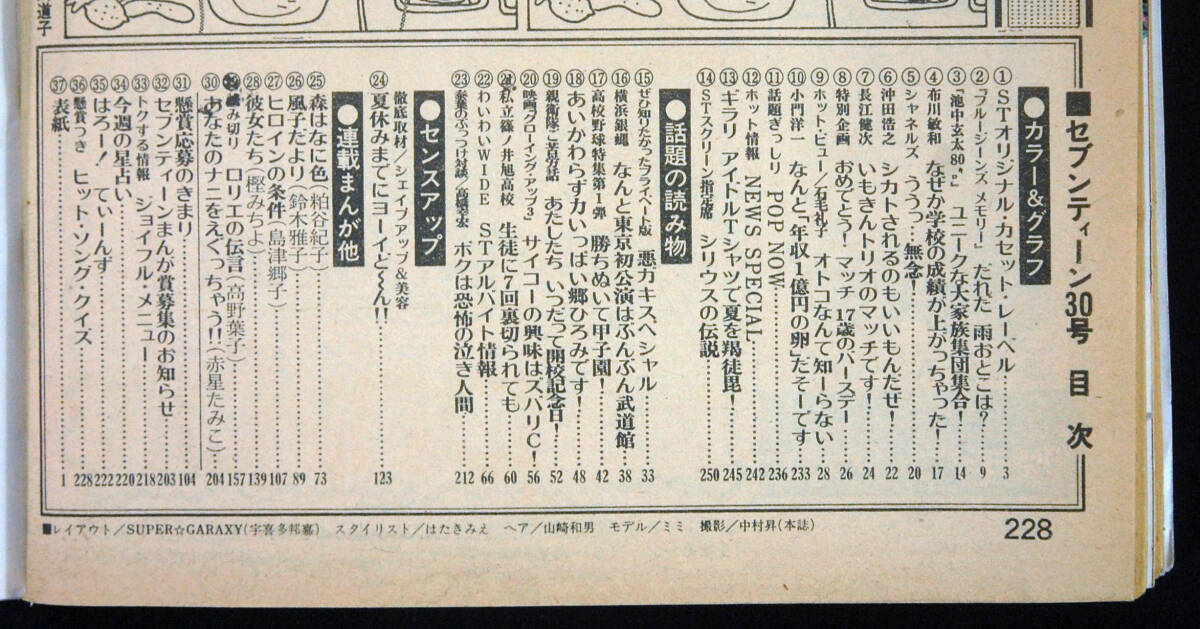 道子
■セブンティーン30号 目次
●カラー&グラフ
①STオリジナル・カセット・レーベル 3
②『ブルージーンズ メモリー』 だれだ 雨おとこは? 9
③『池中玄太80㌔』 ユニークな大家族集団集合! 14
④布川敏和 なぜか学校の成績が上がっちゃった! 17
⑤シャネルズ ううっ…無念! 20
⑥沖田浩之 シカトされるのもいいもんだぜ! 22
⑦長江健次 いもきんトリオのマッチです! 24
⑧特別企画 おめでとう! マッチ 17歳のバースデー 26
⑨ホット・ビュー/石毛礼子 オトコなんて知ーらない 28
⑩小門洋一 なんと「年収1億円の卵」だそーです 233
⑪話題ぎっしり POP NOW 236
⑫ホット情報 NEWS SPECIAL 242
⑬ギラリ アイドルTシャツで夏を羯徒毘! 245
⑭STスクリーン指定席 シリウスの伝説 250
●話題の読み物
⑮ぜひ知りたかったプライベート版 悪ガキスペシャル 33
⑯横浜銀蝿 なんと東京初公演はぶんぶん武道館 38
⑰高校野球特集第1弾 勝ちぬいて甲子園! 42
⑱あいかわらず力いっぱい郷ひろみです! 48
⑲親衛隊ご苦労話 あたしたち いつだって開校記念日! 52
⑳映画『グローイング・アップ3』 サイコーの興味はズバリC! 56
㉑私立篠ノ井旭高校 生徒に7回裏切られても 60
㉒わいわいWIDE STアルバイト情報 66
㉓泰葉のぶっつけ対談/高橋幸宏 ボクは恐怖の泣き人間 212
●センスアップ
徹底取材/シェイプアップ&美容
㉔夏休みまでにヨーイど〜ん!! 123
●連載まんが他
㉕森はなに色(粕谷紀子) 73
㉖風子だより(鈴木雅子) 89
㉗ヒロインの条件(島津郷子) 107
㉘彼女たち(樫みちよ) 139
み切り ロリエの伝言(高野葉子) 157
㉚あなたのナニをえぐっちゃう!!(赤星たみこ) 204
㉛懸賞応募のきまり 104
㉜セブンティーンまんが賞募集のお知らせ 203
㉝トクする情報 ジョイフル・メニュー 218
㉞今週の星占い 220
㉟はろー! てぃーんず 222
㊱懸賞つき ヒット・ソング・クイズ 228
㊲表紙 1
■レイアウト/SUPER☆GARAXY(宇喜多邦嘉) スタイリスト/はたきみえ ヘア/山崎和男 モデル/ミミ 撮影/中村昇(本誌)
228